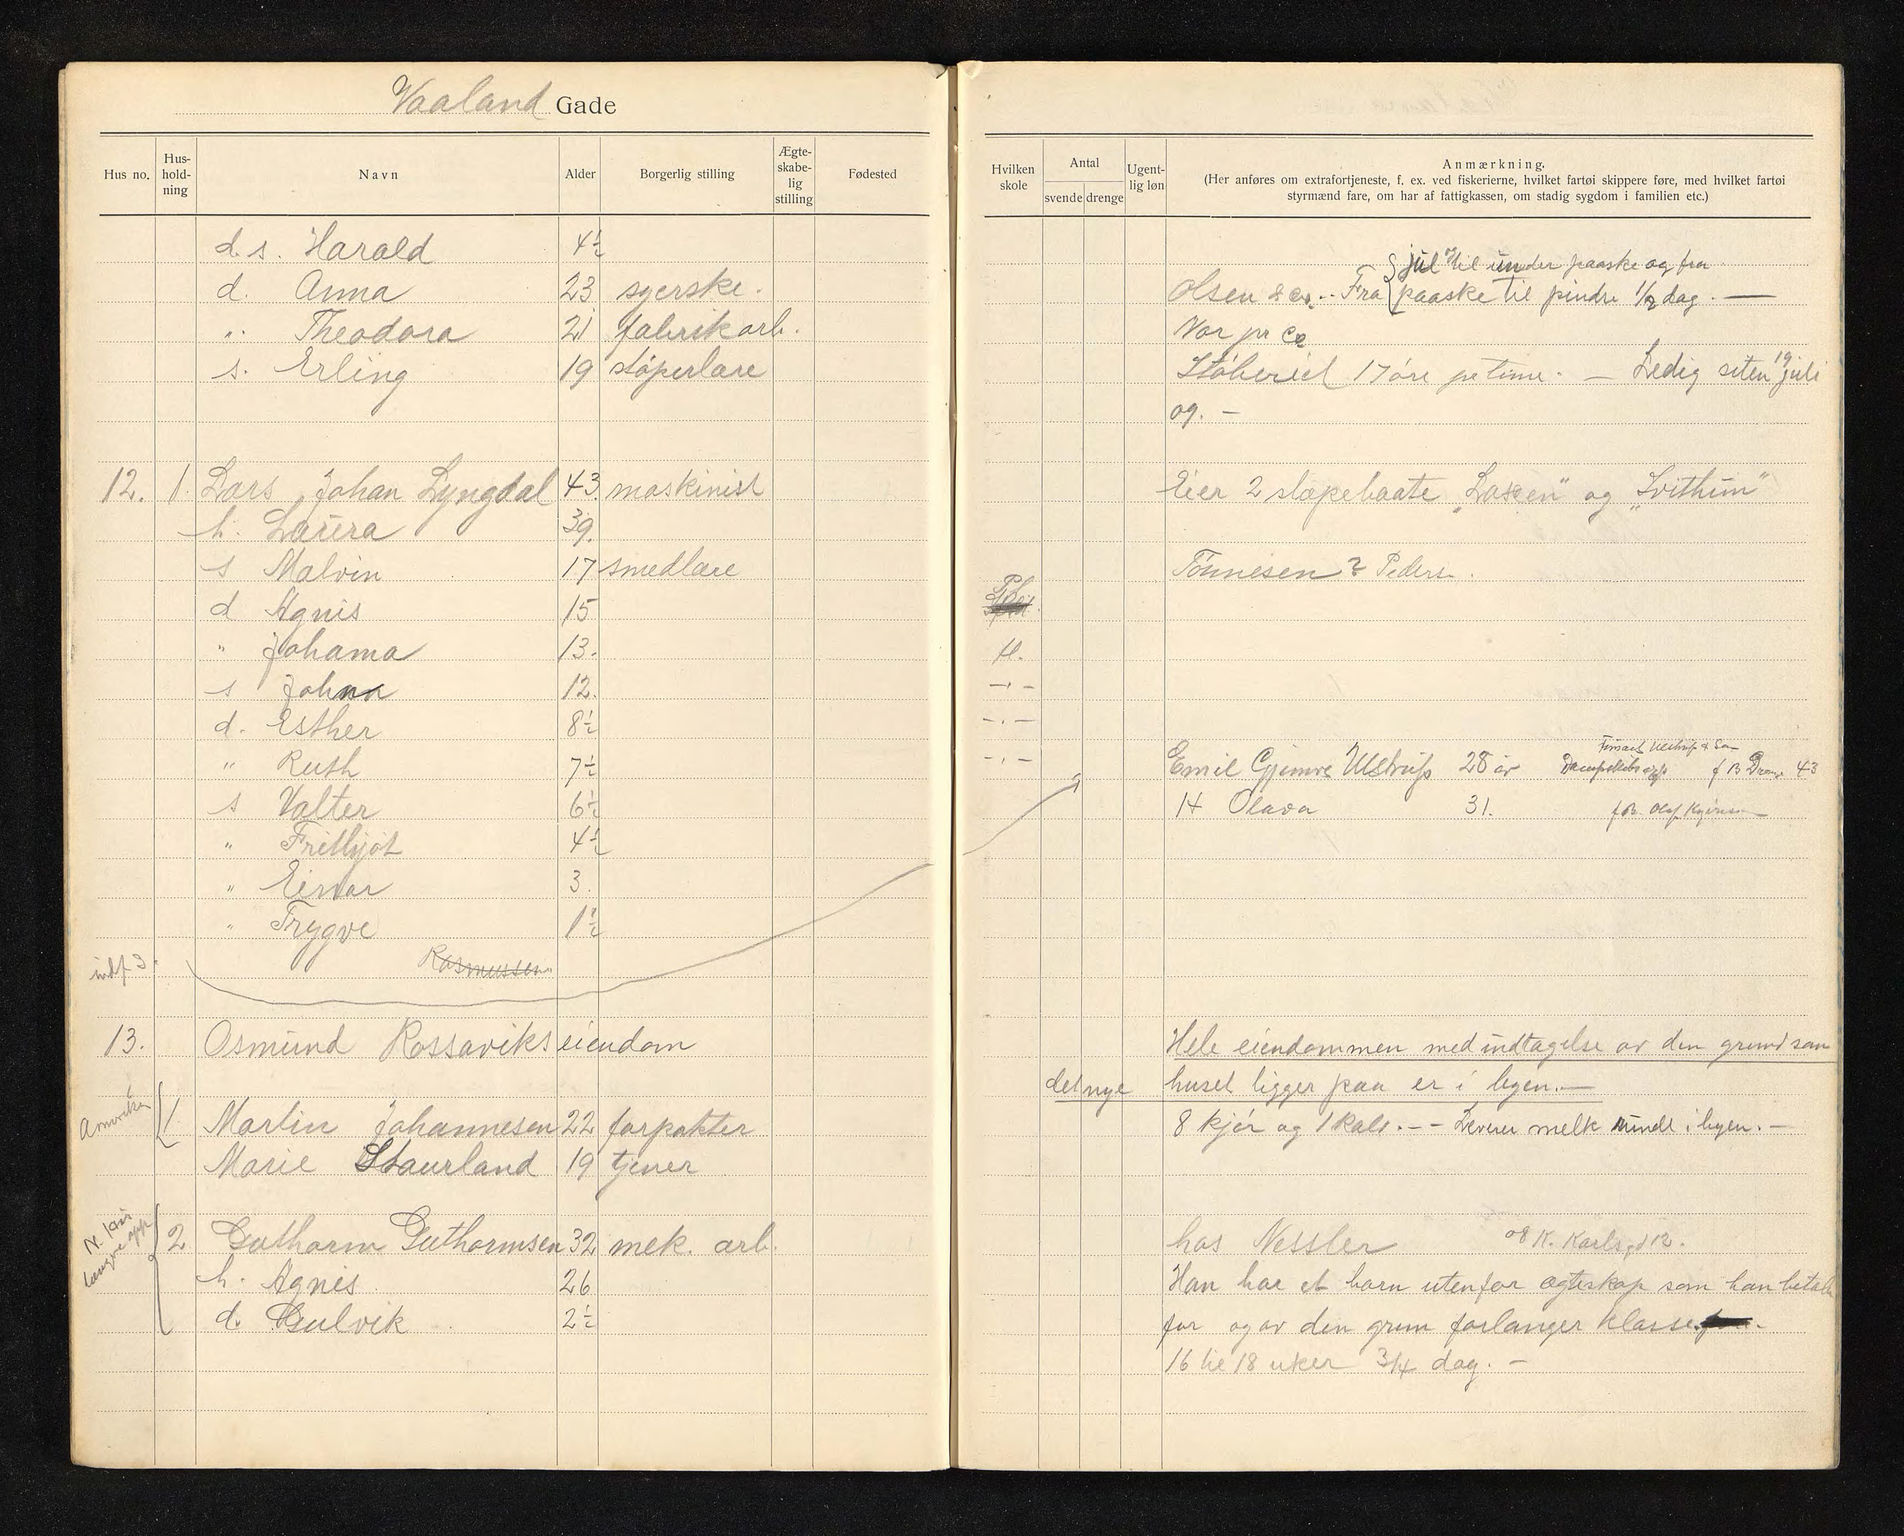 Vaaland Gade
Hus no. Hus-hold-ning Navn Alder Borgerlig stilling Ægte-skabe-lig stilling Fødested
d. s. Harald 4½
d. Anna 23 syerske.
" Theodora 21 fabrikarb.
s. Erling 19 støperlære
12. 1. Lars Johan Lyngdal 43 maskinist
h. Laura 39.
s Malvin 17 smedlære
d Agnis 15
" Johanna 13.
s Johan 12.
d. Esther 8½
" Ruth 7½
s Valter 6½
" Frithjof 4½
" Einar 3.
" Trygve 1½
indf 3. Rasmussen
13. Osmund Rossaviks eiendom
1. Martin Johannesen 22 forpakter
Marie Staurland 19 tjener
2 Guthorm Guthormsen 32 mek. arb.
h. Agnis 26
d. Gulvik 2½
Hvilken skole Antal svende drenge Ugent-lig løn Anmærkning.
(Her anføres om extrafortjeneste, f. ex. ved fiskerierne, hvilket fartøi skippere føre, med hvilket fartøi
styrmænd fare, om har af fattigkassen, om stadig sygdom i familien etc.)
jul til under paaske og fra
Olsen & Co. Fra paaske til pindse ½ dag. —
Nor pr Co
Støberiet 17 øre pr time. — Ledig siten 19 juli
og. —
Eier 2 slæpebaate "Lassen" og "Svithun"
Tønnesen & Peders.
H.
— " —
— " —
— " —
Emil Gjemre Ulstrup 28 år f B 43
H Olava 31. f B. Olaf
Hele eiendommen med indtagelse av den grund som
det nye huset ligger paa er i byen. —
8 kjør og 1 kalv. — Leverer melk rundt i byen. —
hos Nessler og K. Karlsgd 12.
Han har et barn utenfor ægteskap som han betaler
for og av den grun forlanger klasse
16 til 18 uker 3/4 dag. —